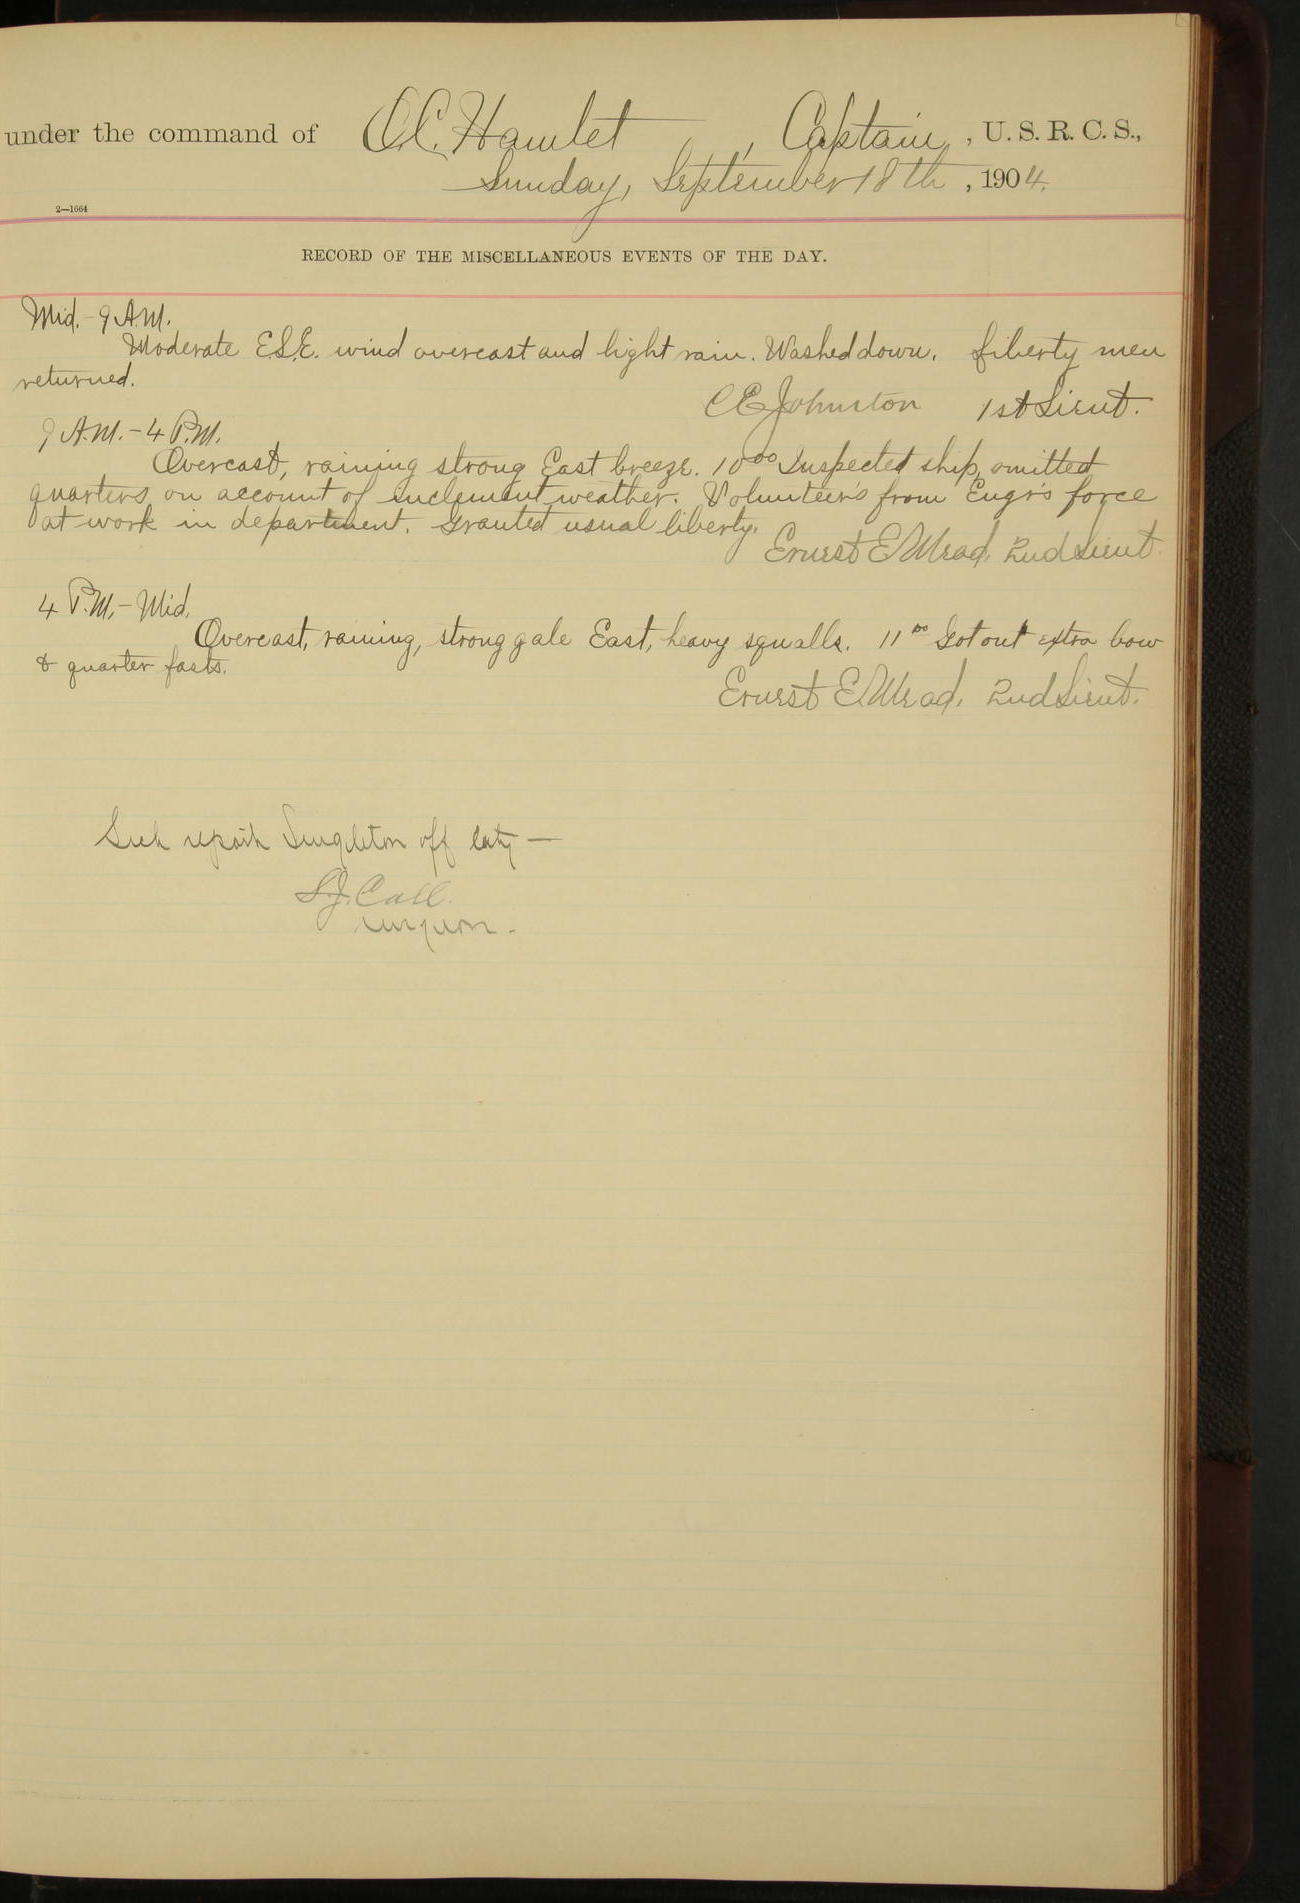 under the command of O.C. Hamlet, Captain, U. S. R. C. S.,
Sunday, September 18th, 1904.
2—1664
RECORD OF THE MISCELLANEOUS EVENTS OF THE DAY.
Mid. - 9 A.M.
Moderate E.S.E. wind overcast and light rain. Washed down. Liberty men
returned.
C E Johnston 1st Lieut.
9 A.M. - 4 P.M.
Overcast, raining strong East breeze. 10 00 Inspected ship, omitted
quarters, on account of inclement weather. Volunteers from Engr's force
at work in department. Granted usual liberty.
Ernest E. Mead, 2nd Lieut.
4 P.M. - Mid.
Overcast, raining, strong gale East, heavy squalls. 11 00 Got out extra bow
& quarter fasts.
Ernest E. Mead, 2nd Lieut.
Sick report Singleton off duty —
S.J. Call.
Surgeon.